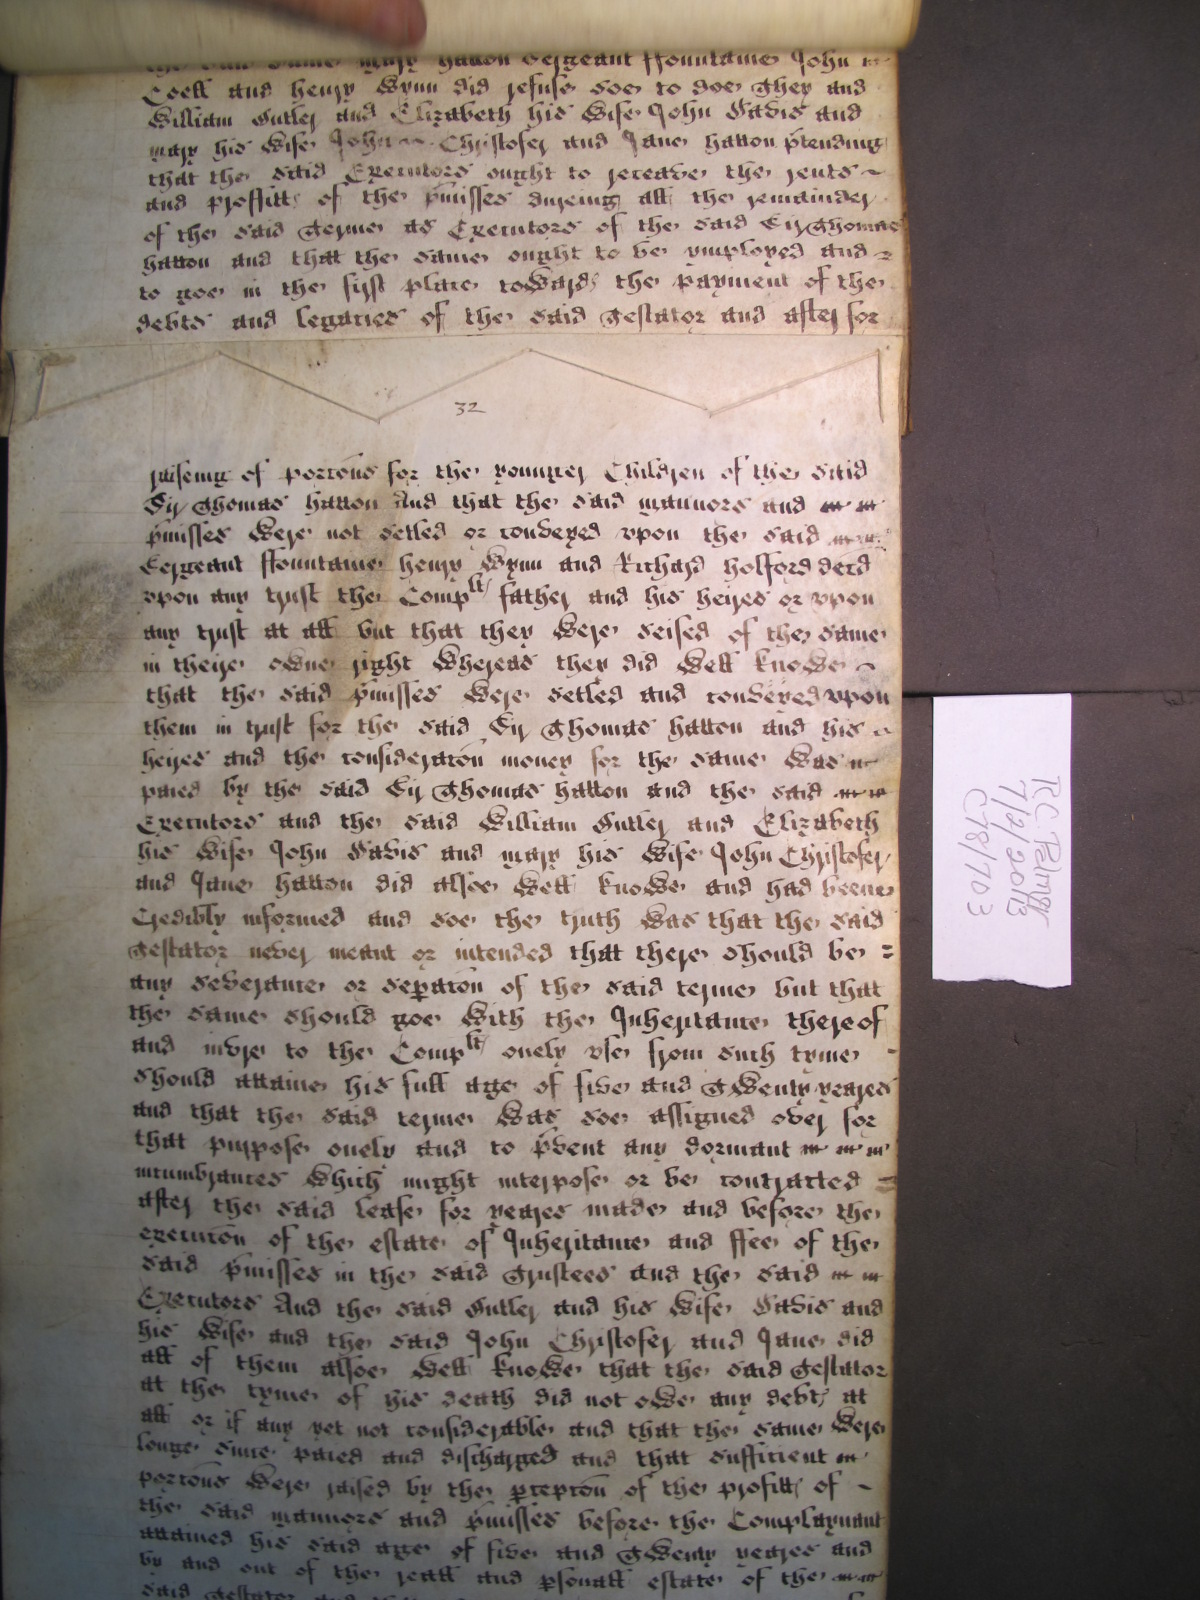 the said dame mary hatton Sergeant ffountaine John
Coell and henry Wynn did refuse soe to doe They and
William Gutler and Elizabeth his Wife John Davis and
mary his Wife John Christofer and Jane hatton p̄tending
that the said Executors ought to receave the rents
and proffitts of the p̄misses dureing all the remainder
of the said Terme as Executors of the said Sir Thomas
hatton and that the same ought to be ymployed and
to goe in the first place towards the payment of the
debts and legacies of the said Testator and after for
32
raiseing of porcōns for the younger Children of the said
Sir Thomas hatton And that the said mannors and
p̄misses Were not setled or conveyed vpon the said
Sergeant ffountaine henry Wynn and Richard holford decd
vpon any trust the Complts father and his heires or vpon
any trust at all but that they Were seised of the same
in theire owne right Whereas they did Well knowe
that the said p̄misses Were setled and conveyed vpon
them in trust for the said Sir Thomas hatton and his
heires and the consideracōn money for the same Was
paied by the said Sir Thomas hatton and the said
Executors and the said William Gutler and Elizabeth
his Wife John Davis and mary his Wife John Christofer
and Jane hatton did alsoe Well knowe and had beene
Credibly informed and soe the truth Was that the said
Testator never meant or intended that there should be
any severance or sep̄acōn of the said terme but that
the same should goe With the Inheritance thereof
and invre to the Complts onely vse from such tyme
should attaine his full age of five and Twenty yeares
and that the said terme Was soe assigned over for
that purpose onely and to p̄vent any dormant
incumbrances Which might interpose or be contracted
after the said lease for yeares made and before the
execucōn of the estate of Inheritance and ffee of the
said p̄misses in the said Trustees and the said
Executors And the said Gutler and his Wife Davis and
his Wife and the said John Christofer and Jane did
all of them alsoe Well knowe that the said Testator
at the tyme of his death did not owe any debts at
all or if any yet not considerable and that the same Were
longe since paied and discharged and that sufficient
porcōns Were raised by the p̄cepcōn of the profitts of
the said mannors and p̄misses before the Complaynant
attained his said age of five and Twenty yeares and
by and out of the reall and p̄sonall estate of the
said Testator and
RC Palmer
7/2/2013
C78/703